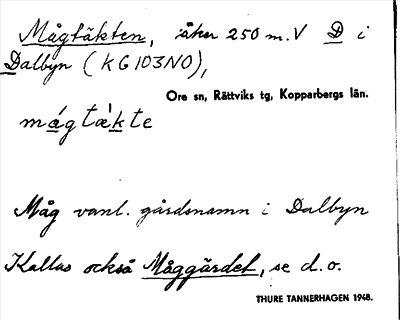 Mågtäkten, åker 250 m. V D i
Dalbyn (KG103NO),
Ore sn, Rättviks tg, Kopparbergs län.
mágtæ̀kte
Måg vanl. gårdsnamn i Dalbyn
Kallas också Måggärdet, se d.o.
THURE TANNERHAGEN 1948.